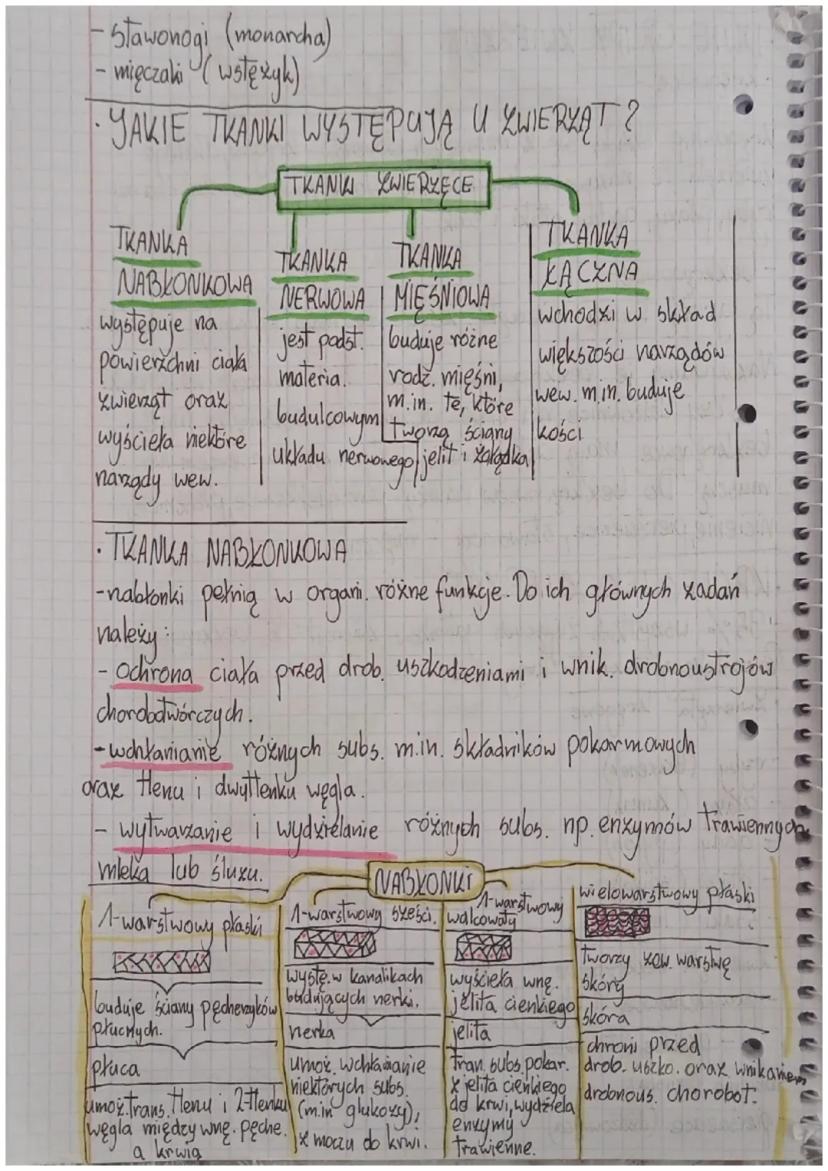 - stawonogi (monarcha)
- mięczaki (wstężyk)
· JAKIE TKANKI WYSTĘPUJĄ U ZWIERZĄT?
TKANKI ZWIERZĘCE
TKANKA
NABŁONKOWA
występuje na
powierzchni ciała
zwierząt oraz
wyścieła niektóre
narządy wew.
TKANKA
NERWOWA
jest podst.
materia.
budulcowym
układu nerwowego
TKANKA
MIĘŚNIOWA
buduje różne
rodz. mięśni,
m.in. te, które
tworzą ściany
jelit i żołądka
TKANKA
ŁĄCZNA
wchodzi w skład
większości narządów
wew. m.in. buduje
kości
· TKANKA NABŁONKOWA
- nabłonki pełnią w organi. różne funkcje. Do ich głównych zadań
należy:
- ochrona ciała przed drob. uszkodzeniami i wnik. drobnoustrojów
chorobotwórczych.
- wchłanianie różnych subs. m.in. składników pokarmowych
oraz tlenu i dwutlenku węgla.
- wytwarzanie i wydzielanie różnych subs. np. enzymów trawiennych
mleka lub śluzu.
NABŁONKI
1-warstwowy płaski
buduje ściany pęcherzyków
płucnych.
płuca
umoż. trans. tlenu i 2-tlenku
węgla między wnę. pęche.
a krwią
1-warstwowy sześci.
wystę. w kanalikach
budujących nerki.
nerka
umoż. wchłanianie
niektórych subs.
(m.in glukozy),
z moczu do krwi.
1-warstwowy
walcowaty
wyścieła wnę.
jelita cienkiego
jelita
tran. subs. pokar.
z jelita cienkiego
do krwi, wydziela
enzymy
trawienne.
wielowarstwowy płaski
tworzy zew. warstwę
skóry
skóra
chroni przed
drob. uszko. oraz wnikaniem
drobnous. chorobot.